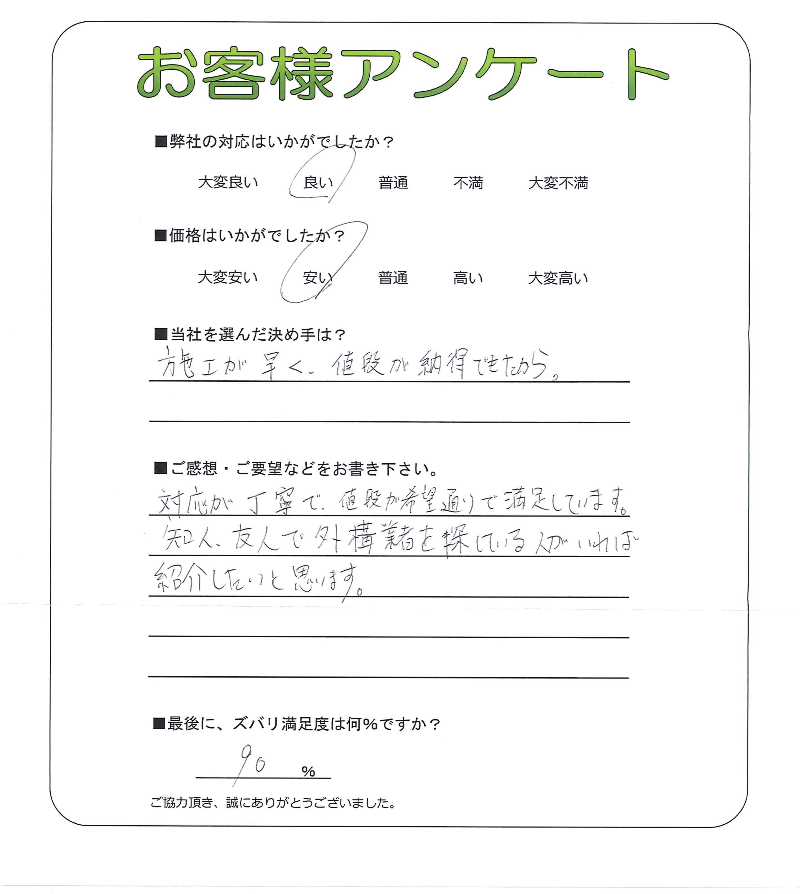 お客様アンケート
■弊社の対応はいかがでしたか？
大変良い 良い 普通 不満 大変不満
■価格はいかがでしたか？
大変安い 安い 普通 高い 大変高い
■当社を選んだ決め手は？
施工が早く、値段が納得できたから。
■ご感想・ご要望などをお書き下さい。
対応が丁寧で、値段が希望通りで満足しています。
知人、友人で外構業者を探している人がいれば
紹介したいと思います。
■最後に、ズバリ満足度は何％ですか？
90 %
ご協力頂き、誠にありがとうございました。